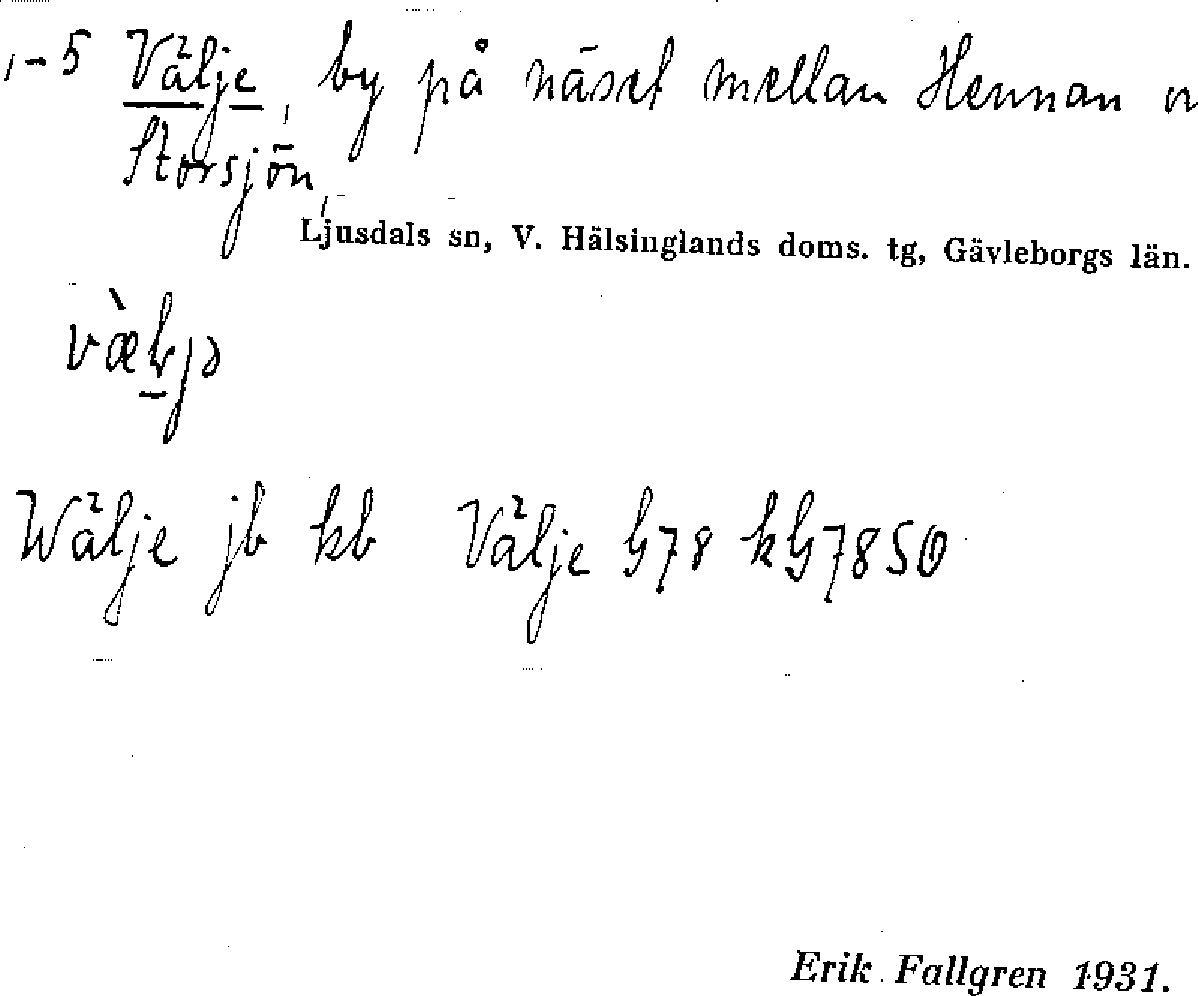 1-5 Välje, by på näset mellan Hennan o
Storsjön,
Ljusdals sn, V. Hälsinglands doms. tg, Gävleborgs län.
Wälje jb kb Välje G78 kG7850
Erik Fallgren 1931.